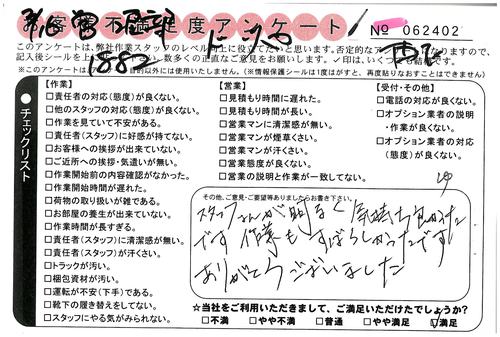 お客様不満足度アンケート
No 062402
1882
このアンケートは、弊社作業スタッフのレベル向上に役立てたいと思います。否定的なア
記入後シールを
数多くの正直なご意見をお願いします。✓印は、いくつ
※このアンケートは
目的以外には使用いたしません。(※情報保護シールは1度がすと、再度貼りなおすことはできません)
チェックリスト
【作業】
□責任者の対応(態度)が良くない。
□他のスタッフの対応(態度)が良くない。
□作業を見ていて不安がある。
□責任者(スタッフ)に好感が持てない。
□お客様への挨拶が出来ていない。
□ご近所への挨拶・気遣いが無い。
□作業開始前の内容確認がなかった。
□作業開始時間が遅れた。
□荷物の取り扱いが雑である。
□お部屋の養生が出来ていない。
□作業時間が長すぎる。
□責任者(スタッフ)に清潔感が無い。
□責任者(スタッフ)が汗くさい。
□トラックが汚い。
□梱包資材が汚い。
□運転が不安(下手)である。
□靴下の履き替えをしてない。
□スタッフにやる気がみられない。
【営業】
□見積もり時間に遅れた。
□見積もり時間が長い。
□営業マンに清潔感が無い。
□営業マンが煙草くさい。
□営業マンが汗くさい。
□営業態度が良くない。
□営業の説明と作業が一致してない。
【受付・その他】
□電話の対応が良くない。
□オプション業者の説明
・作業が良くない。
□オプション業者の対応
(態度)が良くない。
その他、ご意見・ご要望等ありましたらお書き下さい。
スタッフさんが明るく気持ち良かった
です 作業もすばらしかったです
ありがとうございました
☆当社をご利用いただきまして、ご満足いただけたでしょうか?
□不満 □やや不満 □普通 □やや満足 ☑満足